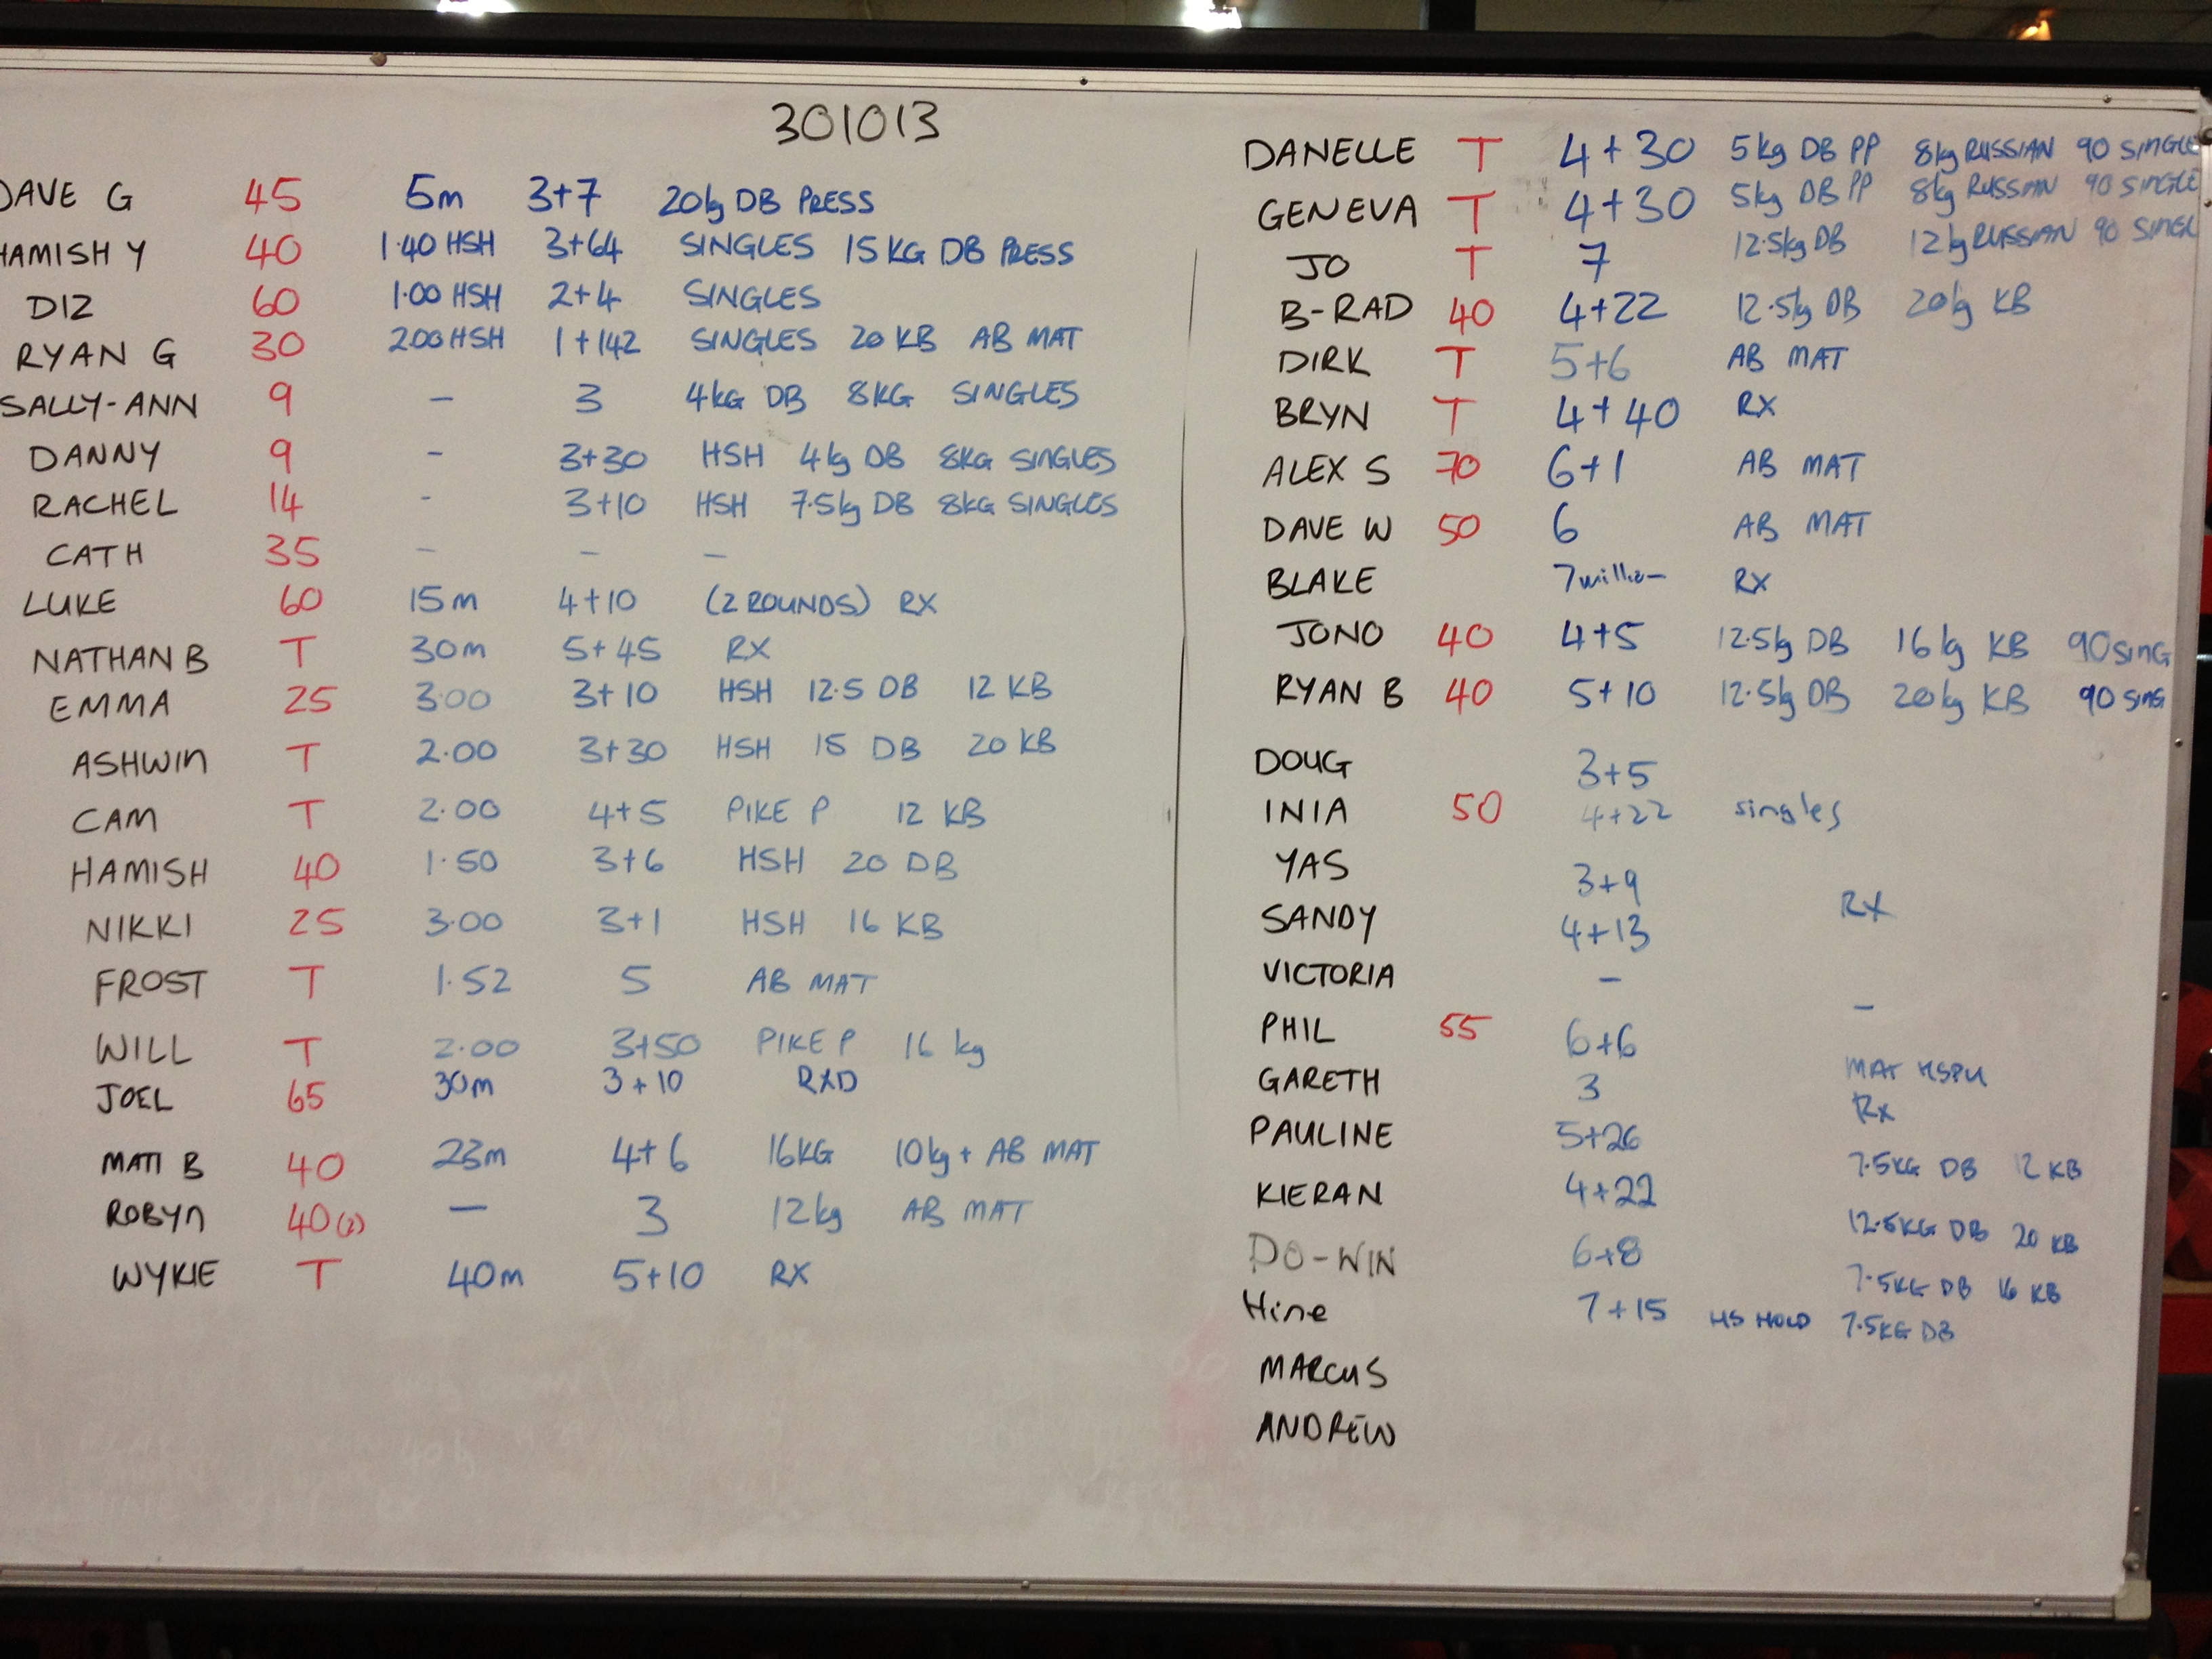 301013
DAVE G 45 5m 3+7 20kg DB PRESS
HAMISH Y 40 1.40 HSH 3+64 SINGLES 15KG DB PRESS
DIZ 60 1.00 HSH 2+4 SINGLES
RYAN G 30 200 HSH 1+142 SINGLES 20 KB AB MAT
SALLY-ANN 9 - 3 4kg DB 8KG SINGLES
DANNY 9 - 3+30 HSH 4kg DB 8KG SINGLES
RACHEL 14 - 3+10 HSH 7.5kg DB 8KG SINGLES
CATH 35 - - -
LUKE 60 15m 4+10 (2 ROUNDS) RX
NATHAN B T 30m 5+45 RX
EMMA 25 3.00 3+10 HSH 12.5 DB 12 KB
ASHWIN T 2.00 3+30 HSH 15 DB 20 KB
CAM T 2.00 4+5 PIKE P 12 KB
HAMISH 40 1.50 3+6 HSH 20 DB
NIKKI 25 3.00 3+1 HSH 16 KB
FROST T 1.52 5 AB MAT
WILL T 2.00 3+50 PIKE P 16 kg
JOEL 65 30m 3+10 RXD
MATT B 40 23m 4+6 16KG 10kg + AB MAT
ROBYN 40 - 3 12kg AB MAT
WYKIE T 40m 5+10 RX
DANELLE T 4+30 5kg DB PP 8kg RUSSIAN 90 SINGLE
GENEVA T 4+30 5kg DB PP 8kg RUSSIAN 90 SINGLE
JO T 7 12.5kg DB 12kg RUSSIAN 90 SINGL
B-RAD 40 4+22 12.5kg DB 20kg KB
DIRK T 5+6 AB MAT
BRYN T 4+40 RX
ALEX S 70 6+1 AB MAT
DAVE W 50 6 AB MAT
BLAKE 7 million RX
JONO 40 4+5 12.5kg DB 16kg KB 90 SING
RYAN B 40 5+10 12.5kg DB 20kg KB 90 SING
DOUG 3+5
INIA 50 4+22 singles
YAS 3+9
SANDY 4+13 RX
VICTORIA - -
PHIL 55 6+6 MAT HSPU
GARETH 3 Rx
PAULINE 5+26 7.5KG DB 12 KB
KIERAN 4+22 12.5KG DB 20 KB
DO-WIN 6+8 7.5KG DB 16 KB
Hine 7+15 HS HOLD 7.5KG DB
MARCUS
ANDREW